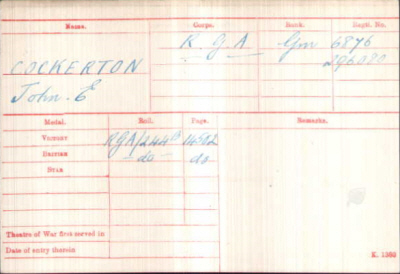 Name. Corps. Rank. Regtl. No.
R. G. A. Gnr 6876
COCKERTON 296080
John. E
Medal. Roll. Page. Remarks.
Victory RGA/244B 14502
British do do
Star
Theatre of War first served in
Date of entry therein K. 1380